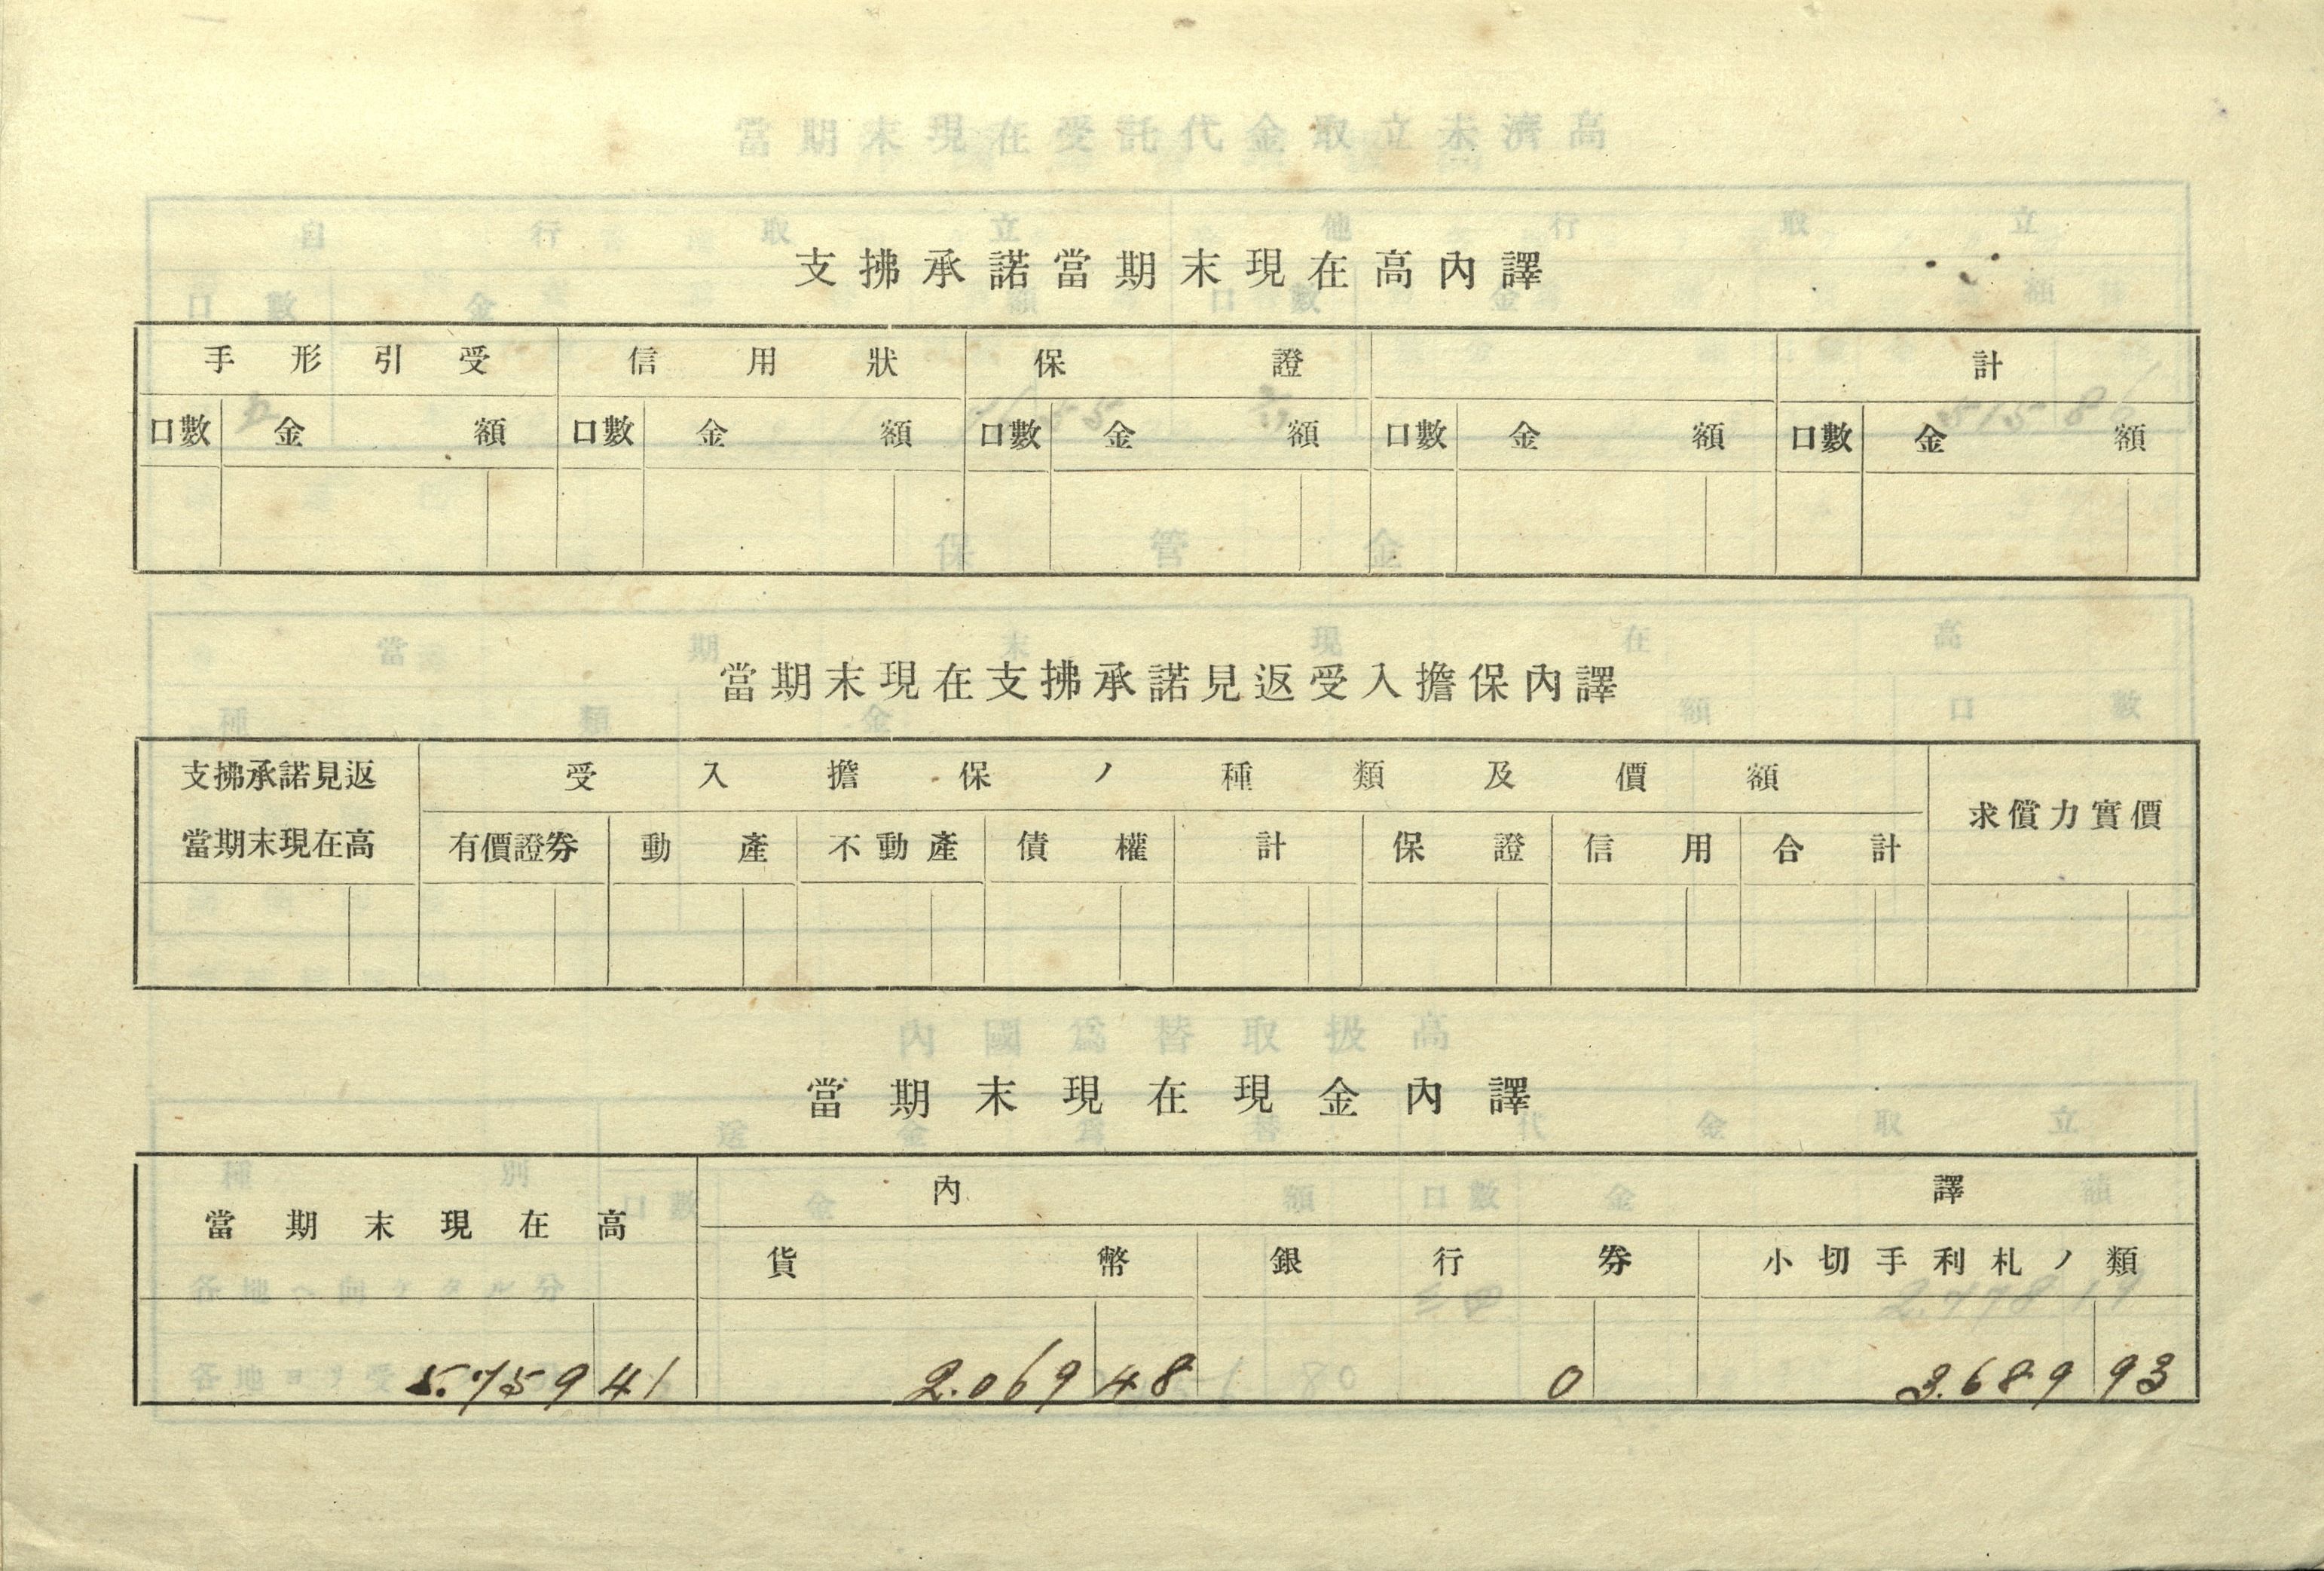 支拂承諾當期末現在高內譯
手形引受 信用狀 保證 計
口數 金額 口數 金額 口數 金額 口數 金額 口數 金額
當期末現在支拂承諾見返受入擔保內譯
支拂承諾見返 受入擔保ノ種類及價額
當期末現在高 有價證券 動產 不動產 債權 計 保證 信用 合計 求償力實價
當期末現在現金內譯
當期末現在高 內譯
貨幣 銀行券 小切手利札ノ類
5.759 41 2.069 48 0 3.689 93